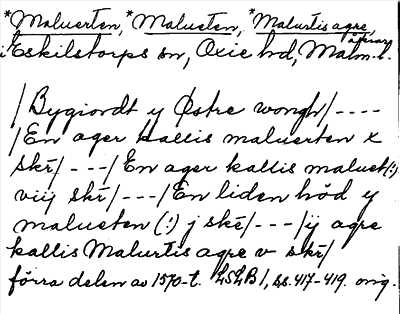 *Maluerten, *Malueten, *Malurtis agre, åkrar
i Eskilstorps sn, Oxie hd, Malm. l.
/Bygiordt y Østre wongh/----
/En ager kallis maluerten x
skr̃/---/En ager kallis maluet(:)
viij skr̃/---/En liden höd y
malueten (:) j skr̃/---/ij agre
kallis Malurtis agre v skr̃/
förra delen av 1570-t. LSLB 1, ss. 417-419. orig.